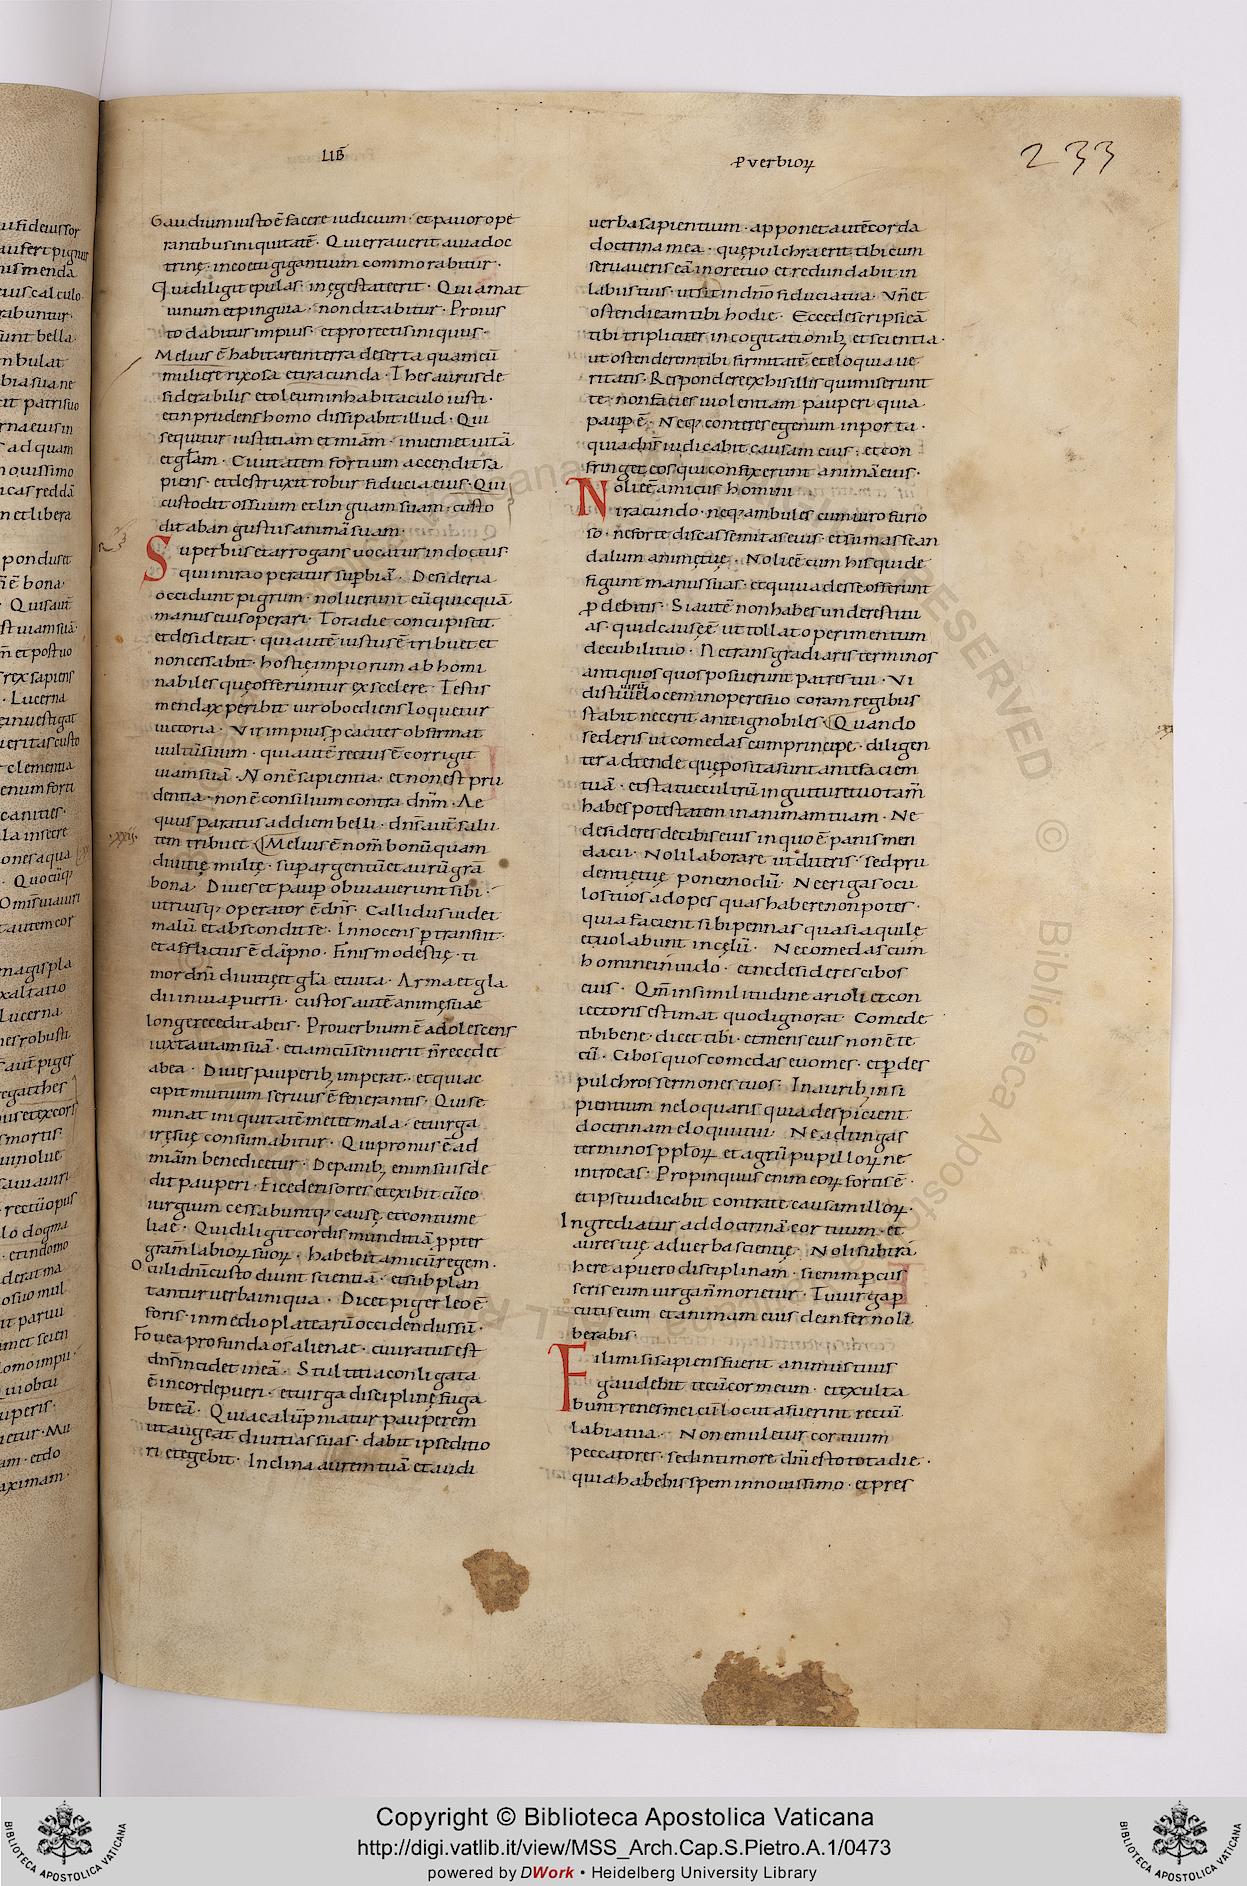 LIB̄
ꝓverbioꝝ
233
Gaudium iusto ē facere iudicium · et pavor ope
rantibus iniquitatē · Qui erraverit a via doc
trinę · in coetu gigantium commorabitur ·
Qui diligit epulas · in ęgestate erit · Qui amat
vinum et pinguia · non ditabitur · Pro ius
to dabitur impius · et pro rectis iniquus ·
Melius ē habitare in terra deserta quam cū
muliere rixosa et iracunda · Thesaurus de
siderabilis et oleum in habitaculo iusti ·
et inprudens homo dissipabit illud · Qui
sequitur iustitiam et miām · inveniet vitā
et glām · Civitatem fortium ascendit sa
piens · et destruxit robur fiducia eius · Qui
custodit os suum et linguam suam · custo
dit ab angustiis animā suam ·
Superbus et arrogans vocatur indoctus ·
qui in ira operatur supbiā · Desideria
occidunt pigrum · noluerunt eū quicquā
manus eius operari · Tota die concupiscit
et desiderat · qui autē iustus ē tribuet et
non cessabit · hostię impiorum abhomi
nabiles quę offeruntur ex scelere · Testis
mendax peribit vir oboediens loquetur
victoria · Vir impius ꝓcaciter obfirmat
vultū suum · qui autē rectus ē corrigit
viam suā · Non ē sapientia · et non est pru
dentia · non ē consilium contra dnm̄ · Ae
quus paratur ad diem belli · dns̄ aut̄ salu
tem tribuet · Melius ē nom̄ bonū quam
divitię multę · super argentū et aurū grā
bona · Dives et paup obviaverunt sibi ·
utriusq; operator ē dns̄ · Callidus videt
malū et abscondit se · Innocens ptransiit ·
et afflictus ē dāpno · Finis modestię · ti
mor dnī divitię et glā et vita · Arma et gla
dii in via pversi · custos autē animę suae
longe recedit ab eis · Proverbium ē adolescens
iuxta viam suā · etiam cū senuerit n̄ recedet
ab ea · Dives pauperib; imperat · et qui ac
cipit mutuum servus ē fenerantis · Qui se
minat iniquitatē metet mala · et virga
irę suę consumabitur · Qui pronus ē ad
miām benedicetur · De panib; enim suis de
dit pauperi · Eice derisores et exibit cū eo
iurgium cessabuntq; causę et contume
liae · Qui diligit cordis munditiā ꝓpter
gram̄ labioꝝ suoꝝ · habebit amicū regem ·
Oculi dnī custodiunt scientiā · et subplan
tantur verba iniqua · Dicet piger leo ē
foris · in medio platearū occidendus sū ·
Fovea profunda os alienae · cui iratus est
dns̄ incidet in eā · Stultitia conligata
ē in corde pueri · et virga disciplinę fuga
bit eā · Qui calūpniatur pauperem
ut augeat divitias suas · dabit ipse ditio
ri et egebit · Inclina aurem tuā et audi
·xxii·
verba sapientium · appone autē cor da
doctrina mea · quę pulchra erit tibi cum
servaveris eā in ore tuo et redundabit in
labiis tuis · ut sit in dno̅ fiducia tua · Vn̄ et
ostendi eam tibi hodie · Ecce descripsi eā
tibi tripliciter in cogitationib; et scientia ·
ut ostenderem tibi firmitatē et eloquia ve
ritatis · Respondere ex his illis qui miserunt
te · non facies violentiam pauperi quia
paup ē · Neq; conteres egenum in porta ·
quia dns̄ iudicabit causam eius · et con
fringet eos qui confixerunt animā eius ·
Noli eē amicus homini
iracundo · neq; ambules cum viro furio
so · ne forte discas semitas eius · et sumas scan
dalum animę tuę · Noli eē cum his qui de
figunt manus suas · et qui vades se offerunt
ꝓ debitis · Si autē non habes unde restitu
as · quid causę ē ut tollat operimentum
de cubili tuo · Ne transgradiaris terminos
antiquos quos posuerunt patres tui · Vi
disti virū velocem in opere suo coram regibus
stabit nec erit ante ignobiles · Quando
sederis ut comedas cum principe · diligen
ter adtende quę posita sunt ante faciem
tuā · et statue cultrū in gutture tuo tam̄
habes potestatem in animam tuam · Ne
desideres de cibis eius in quo ē panis men
dacii · Noli laborare ut diteris · sed pru
dentię tuę pone modū · Ne erigas ocu
los tuos ad opes quas habere non potes ·
quia facient sibi pennas quasi aquilę
et volabunt in cęlū · Ne comedas cum
homine invido · et ne desideres cibos
eius · Qm̄ in similitudine arioli et con
iectoris estimat quod ignorat · Comede
et bibe dicet tibi · et mens eius non ē te
cū · Cibos quos comedas evomes · et pdes
pulchros sermones tuos · In aurib; insi
pientium ne loquaris quia despicient
doctrinam eloquii tui · Ne adtingas
terminos ppl̄oꝝ et agrū pupilloꝝ ne
introeas · Propinquus enim eoꝝ fortis ē ·
et ipse iudicabit contra te causam illoꝝ ·
Ingrediatur ad doctrinā cor tuum · et
aures tuę ad verba scientię · Noli subtra
here a puero disciplinam · si enim pcus
seris eum virga n̄ morietur · Tu virga p
cutis eum et animam eius de inferno li
berabis ·
Fili mi si sapiens fuerit animus tuus
gaudebit tecū cor meum · et exulta
bunt renes mei cū locuta fuerint rectū
labia tua · Non emuletur cor tuum
peccatores · sed in timore dnī esto tota die ·
quia habebis spem in novissimo · et pres
Copyright © Biblioteca Apostolica Vaticana
http://digi.vatlib.it/view/MSS_Arch.Cap.S.Pietro.A.1/0473
powered by DWork • Heidelberg University Library